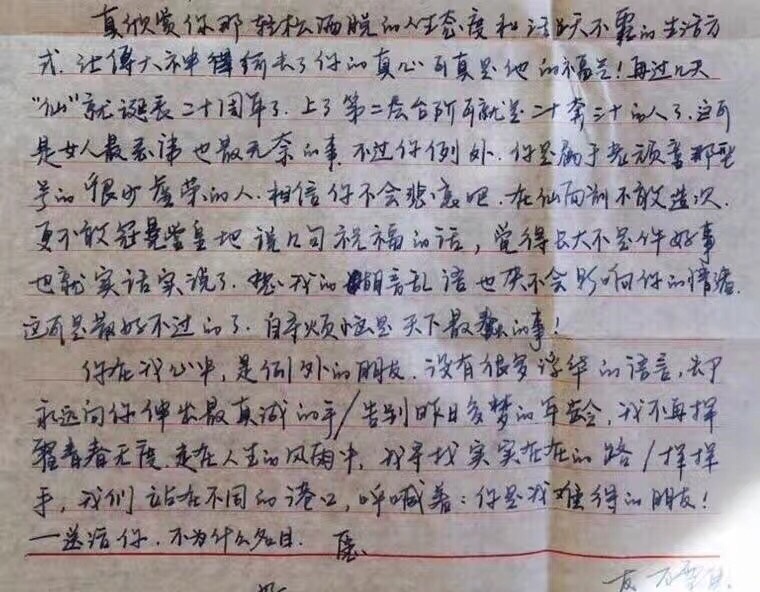 真欣赏你那轻松洒脱的人生态度和谈天不露的生活方
式.让傅大神得绮去了你的真心可真是他的福气!再过几天
"仙"就诞辰二十周年了.上了第二层台阶可就是二十奔三十的人了.这可
是女人最忌讳也最无奈的事.不过你例外.你是属于老顽童那型
号的很少虚荣的人.相信你不会悲哀吧.在仙面前不敢造次.
更不敢冠冕堂皇地说几句祝福的话,觉得长大不是件好事
也就实话实说了.想我的胡言乱语也决不会影响你的情绪.
这可是最好不过的了.自寻烦恼是天下最蠢的事!
你在我心中,是例外的朋友.没有很多浮华的语言,却
永远向你伸出最真诚的手/告别昨日多梦的年龄,我不再挥
霍青春无度.走在人生的风雨中,我寻找实实在在的路/挥挥
手,我们站在不同的港口,呼喊着:你是我难得的朋友!
一送给你.不为什么名目.
友